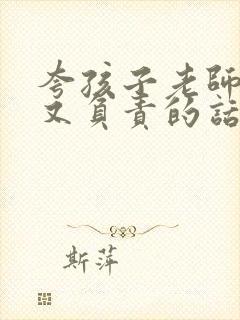 夸孩子老師
又負責的話
斯萍